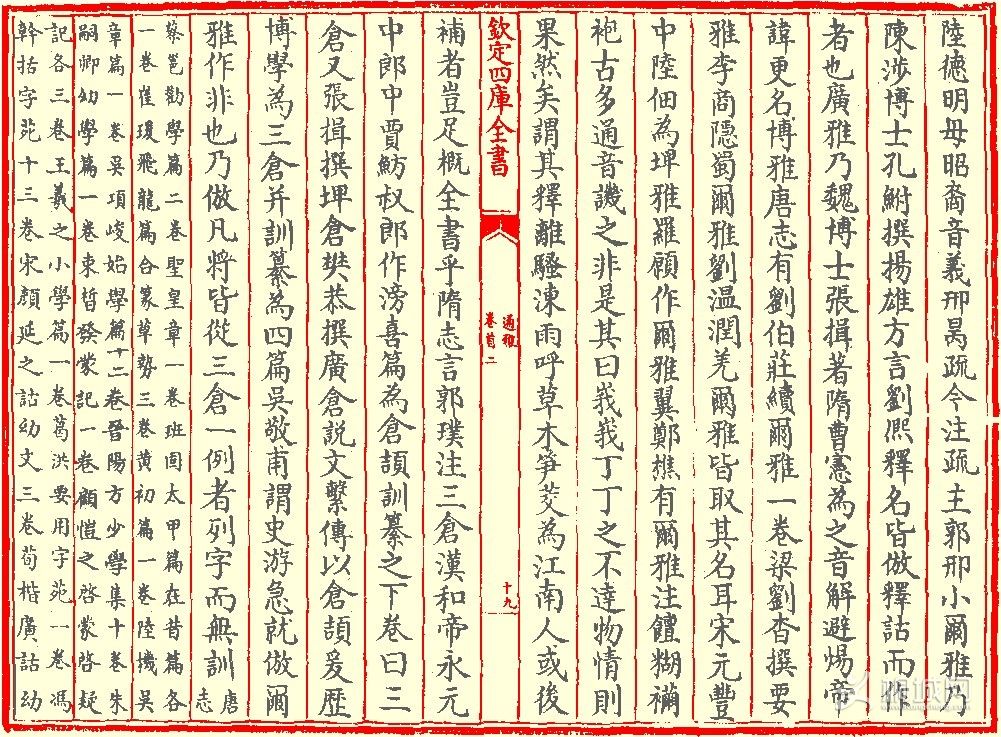 陸德明毋昭裔音義邢昺疏今注疏主郭邢小爾雅乃
陳涉博士孔鮒撰揚雄方言劉熈釋名皆倣釋詁而作
者也廣雅乃魏博士張揖著隋曹憲為之音解避煬帝
諱更名博雅唐志有劉伯莊續爾雅一卷梁劉杳撰要
雅李商隱蜀爾雅劉温潤羌爾雅皆取其名耳宋元豐
中陸佃為埤雅羅願作爾雅翼鄭樵有爾雅注饘糊襺
袍古多通音譏之非是其曰峩峩丁丁之不達物情則
果然矣謂其釋離騷涷雨呼草木笋茭為江南人或後
欽定四庫全書
通雅
卷首二
十九
補者豈足概全書乎隋志言郭璞注三倉漢和帝永元
中郎中賈魴叔郎作滂喜篇為倉頡訓纂之下卷曰三
倉又張揖撰埤倉樊恭撰廣倉説文繫傳以倉頡爰歷
博學為三倉并訓纂為四篇吳敬甫謂史游急就倣爾
雅作非也乃倣凡將皆從三倉一例者列字而無訓
唐
志
蔡邕勸學篇二卷聖皇章一卷班固太甲篇在昔篇各
一卷崔瑗飛龍篇合篆草勢三卷黄初篇一卷陸機吳
章篇一卷吳項峻始學篇十二卷晉陽方少學集十卷朱
嗣卿幼學篇一卷束晳發蒙記一卷顧愷之啓蒙啓疑
記各三卷王羲之小學篇一卷葛洪要用字苑一卷馮
幹括字苑十三卷宋顔延之詁幼文三卷荀楷廣詁幼